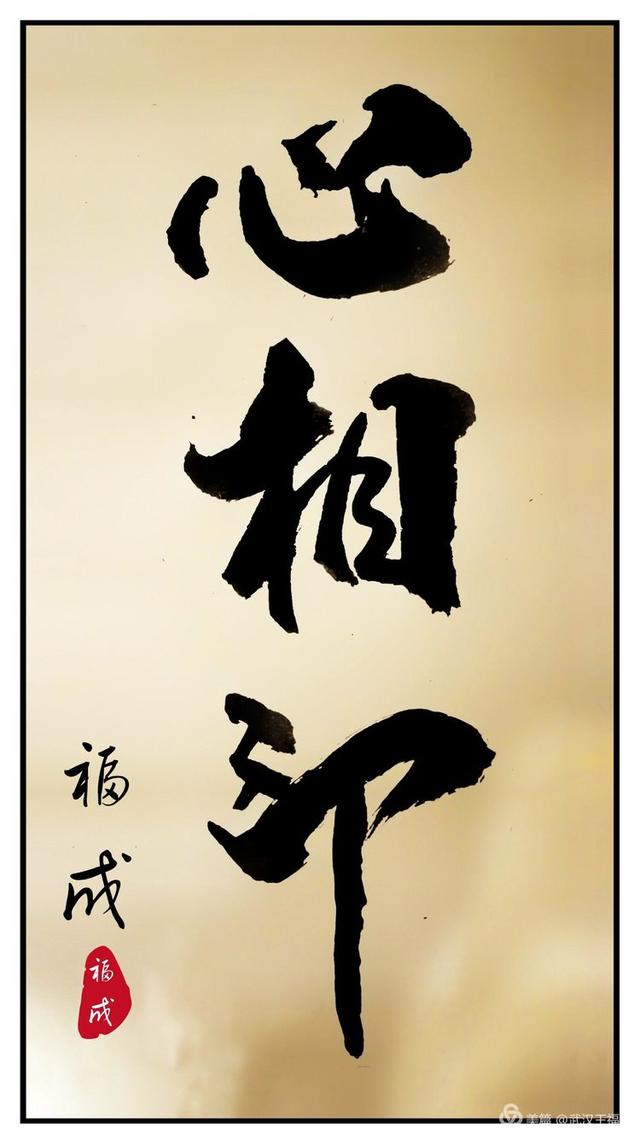 心相印
福成
福成
美篇 @武汉王福